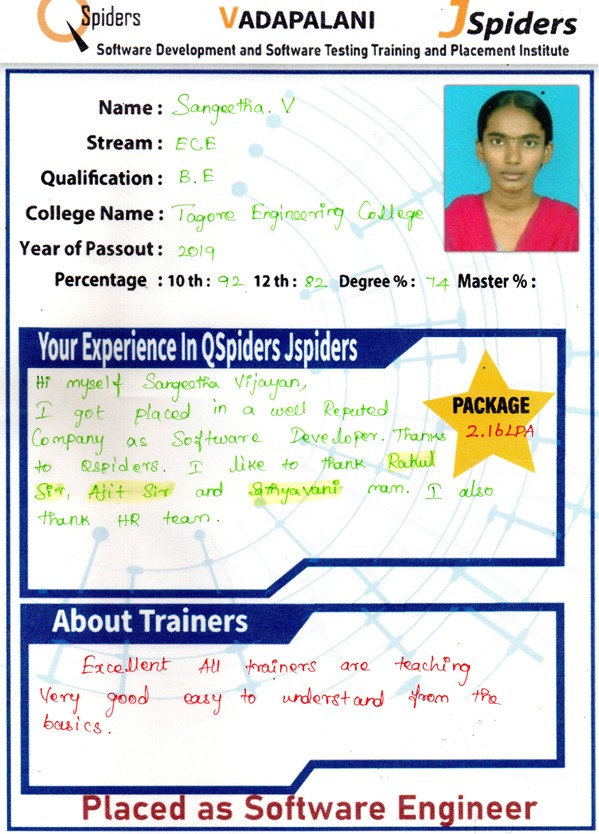 QSpiders VADAPALANI JSpiders
Software Development and Software Testing Training and Placement Institute
Name : Sangeetha. V
Stream : ECE
Qualification : B.E
College Name : Tagore Engineering College
Year of Passout : 2019
Percentage : 10 th : 92 12 th : 82 Degree % : 74 Master % :
Your Experience In QSpiders Jspiders
Hi myself Sangeetha Vijayan,
I got placed in a well Reputed
Company as Software Developer. Thanks
to Qspiders. I like to thank Rahul
Sir, Ajit Sir and Sathyavani mam. I also
thank HR team.
PACKAGE
2.16LPA
About Trainers
Excellent All trainers are teaching
Very good easy to understand from the
basics.
Placed as Software Engineer